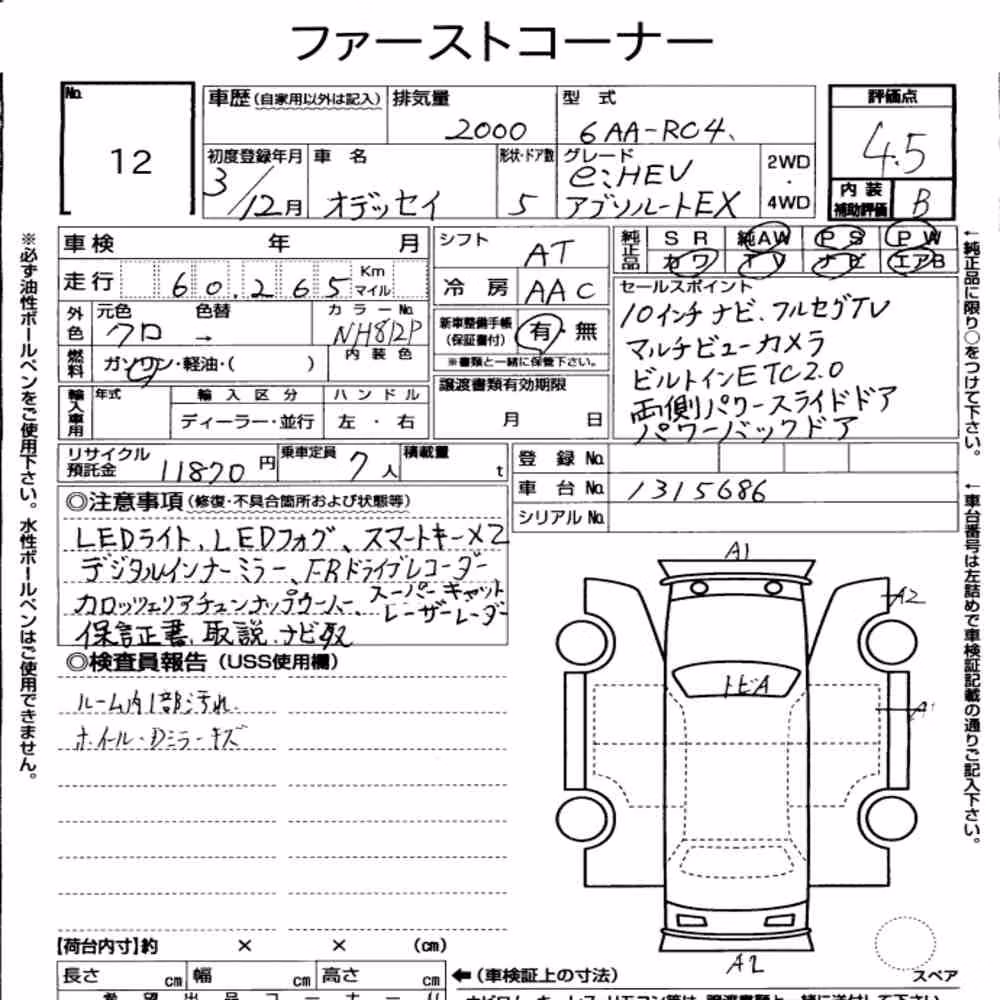 ファーストコーナー
No.
12
車歴(自家用以外は記入)
排気量
2000
型 式
6AA-RC4
評価点
4.5
初度登録年月
3/12月
車 名
オデッセイ
形状・ドア数
5
グレード
e:HEV
アブソルートEX
2WD
・
4WD
内装
補助評価
B
車検 年 月
シフト
AT
純正品
SR 純AW PS PW
カワ TV ナビ エアB
走行 60,265 Km
マイル
冷房
AAC
外色
元色 色替
クロ →
カラーNo.
NH812P
燃料
ガソリン・軽油・( )
内装色
新車整備手帳
(保証書付)
有・無
※書類と一緒に保管下さい。
セールスポイント
10インチナビ、フルセグTV
マルチビューカメラ
ビルトインETC2.0
両側パワースライドドア
パワーバックドア
輸入車用
年式
輸入区分
ディーラー・並行
ハンドル
左・右
譲渡書類有効期限
月 日
リサイクル
預託金
11870円
乗車定員
7人
積載量
t
登録No.
車台No. 1315686
シリアルNo.
◎注意事項(修復・不具合箇所および状態等)
LEDライト、LEDフォグ、スマートキー×2
デジタルインナーミラー、F.Rドライブレコーダー
カロッツェリアチューンナップウーハー、スーパーキャット
レーザーレーダー
保証書、取説、ナビ取
◎検査員報告(USS使用欄)
ルーム内1部汚れ
ホイール・Dミラーキズ
A1
A2
トビA
A1
A2
スペア
【荷台内寸】約 × × (cm)
長さ cm 幅 cm 高さ cm
←(車検証上の寸法)
※必ず油性ボールペンをご使用下さい。水性ボールペンはご使用できません。
←純正品に限り○をつけて下さい。
←車台番号は左詰めで車検証記載の通りご記入下さい。